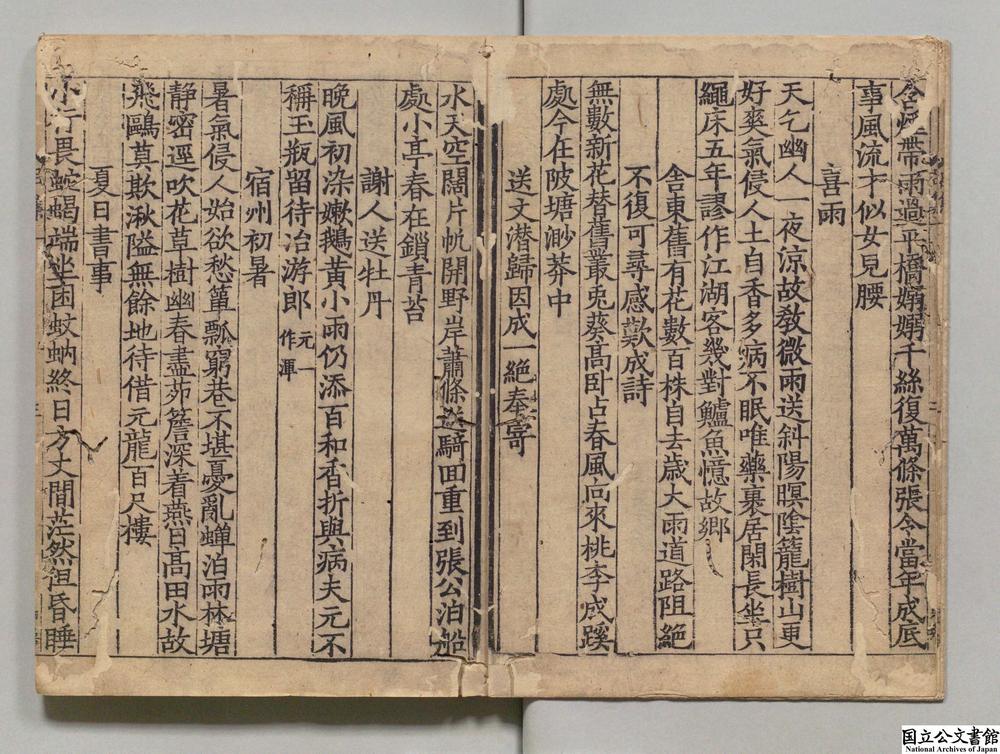 含煙帶雨過平橋嫋嫋千絲復萬條張令當年成底
事風流才似女兒腰
喜雨
天乞幽人一夜涼故教微雨送斜陽暝陰籠樹山更
好爽氣侵人土自香多病不眠唯藥裹居閑長坐只
繩床五年謬作江湖客幾對鱸魚憶故鄉
舍東舊有花數百株自去歳大雨道路阻絶
不復可尋感歎成詩
無數新花替舊叢兎葵髙卧占春風向來桃李成蹊
處今在陂塘渺莽中
送文潜歸因成一絶奉寄
水天空闊片帆開野岸蕭條送騎回重到張公泊船
處小亭春在鎖青苔
謝人送牡丹
晚風初染嫩鵝黄小雨仍添百和香折與病夫元不
稱玉瓶留待冶游郎 元一作渾
宿州初暑
暑氣侵人始欲愁簞瓢窮巷不堪憂亂蟬泊雨林塘
静密逕吹花草樹幽春盡茆簷深着燕日髙田水故
飛鷗莫欺湫隘無餘地待借元龍百尺樓
夏日書事
小行畏蛇蝎端坐困蚊蚋終日方丈間茫然但昏睡
国立公文書館
National Archives of Japan